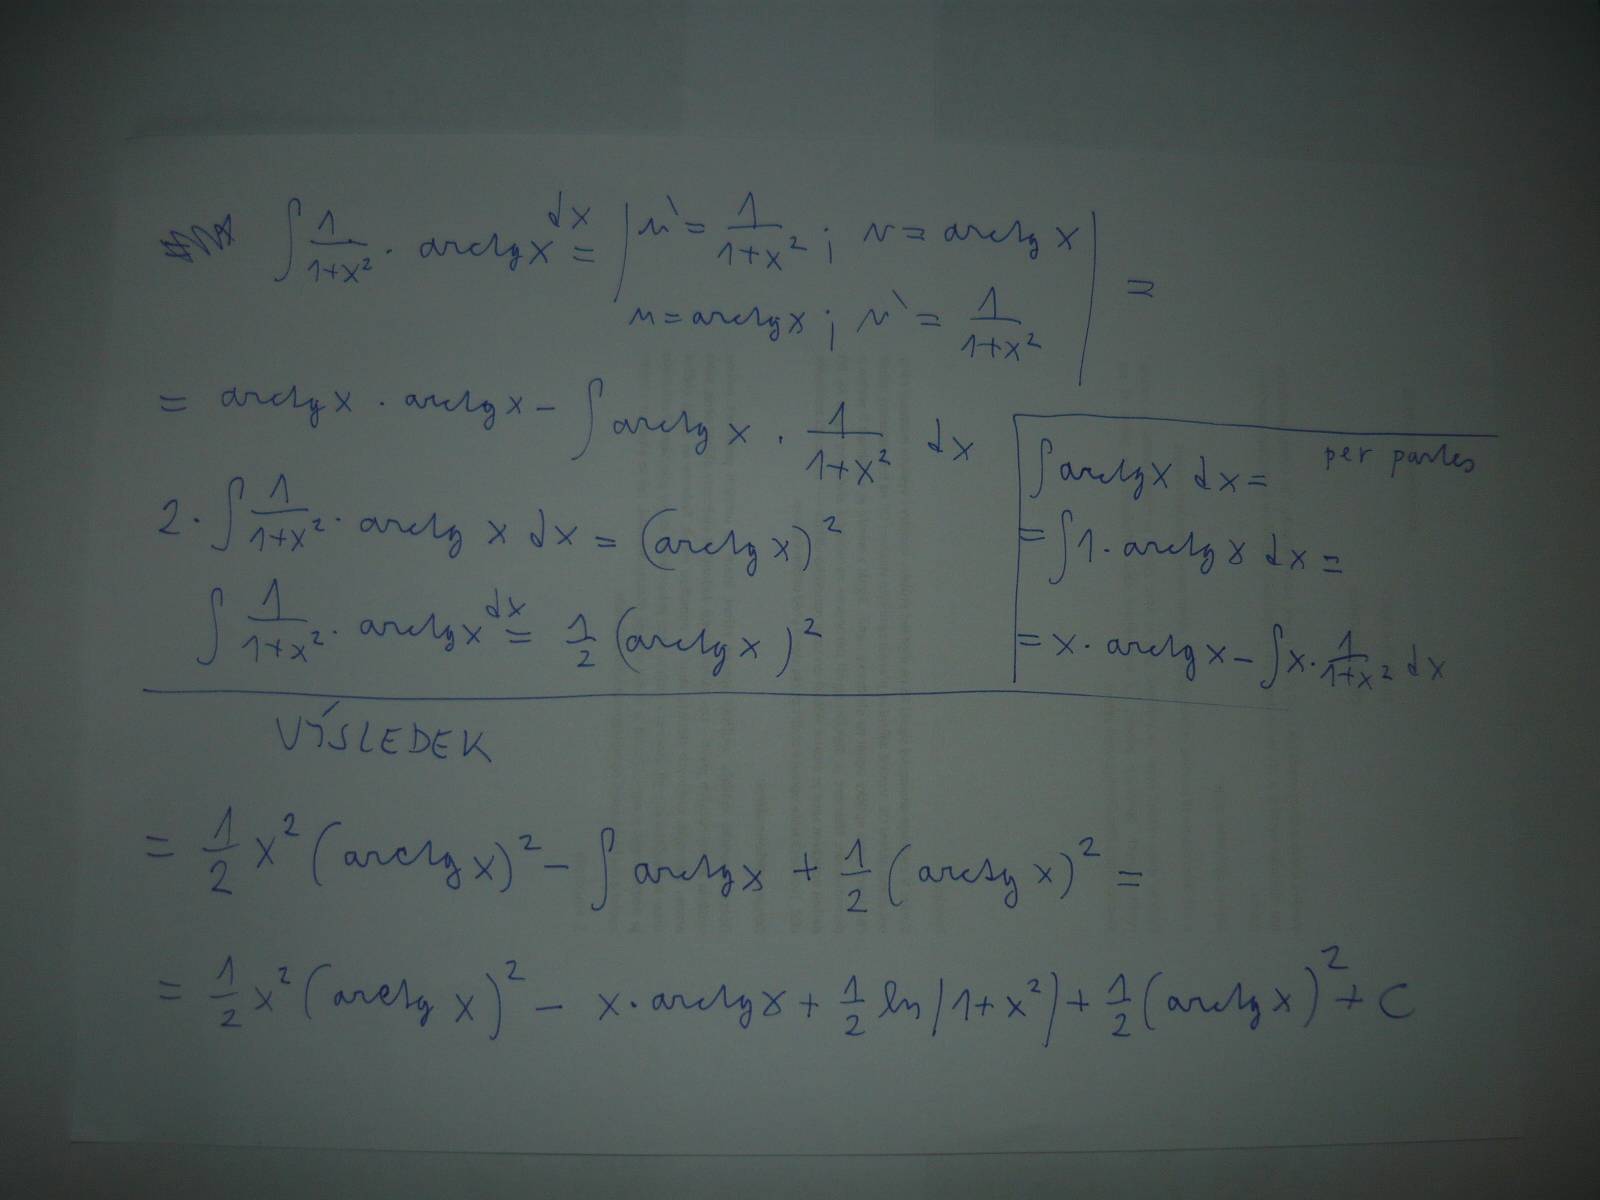 ∫ 1/(1+x²) · arctg x dx = | u' = 1/(1+x²) ; v = arctg x | =
u = arctg x ; v' = 1/(1+x²)
= arctg x · arctg x − ∫ arctg x · 1/(1+x²) dx
2 · ∫ 1/(1+x²) · arctg x dx = (arctg x)²
∫ 1/(1+x²) · arctg x dx = 1/2 (arctg x)²
per partes
∫ arctg x dx =
= ∫ 1 · arctg x dx =
= x · arctg x − ∫ x · 1/(1+x²) dx
VÝSLEDEK
= 1/2 x² (arctg x)² − ∫ arctg x + 1/2 (arctg x)² =
= 1/2 x² (arctg x)² − x · arctg x + 1/2 ln |1+x²| + 1/2 (arctg x)² + C